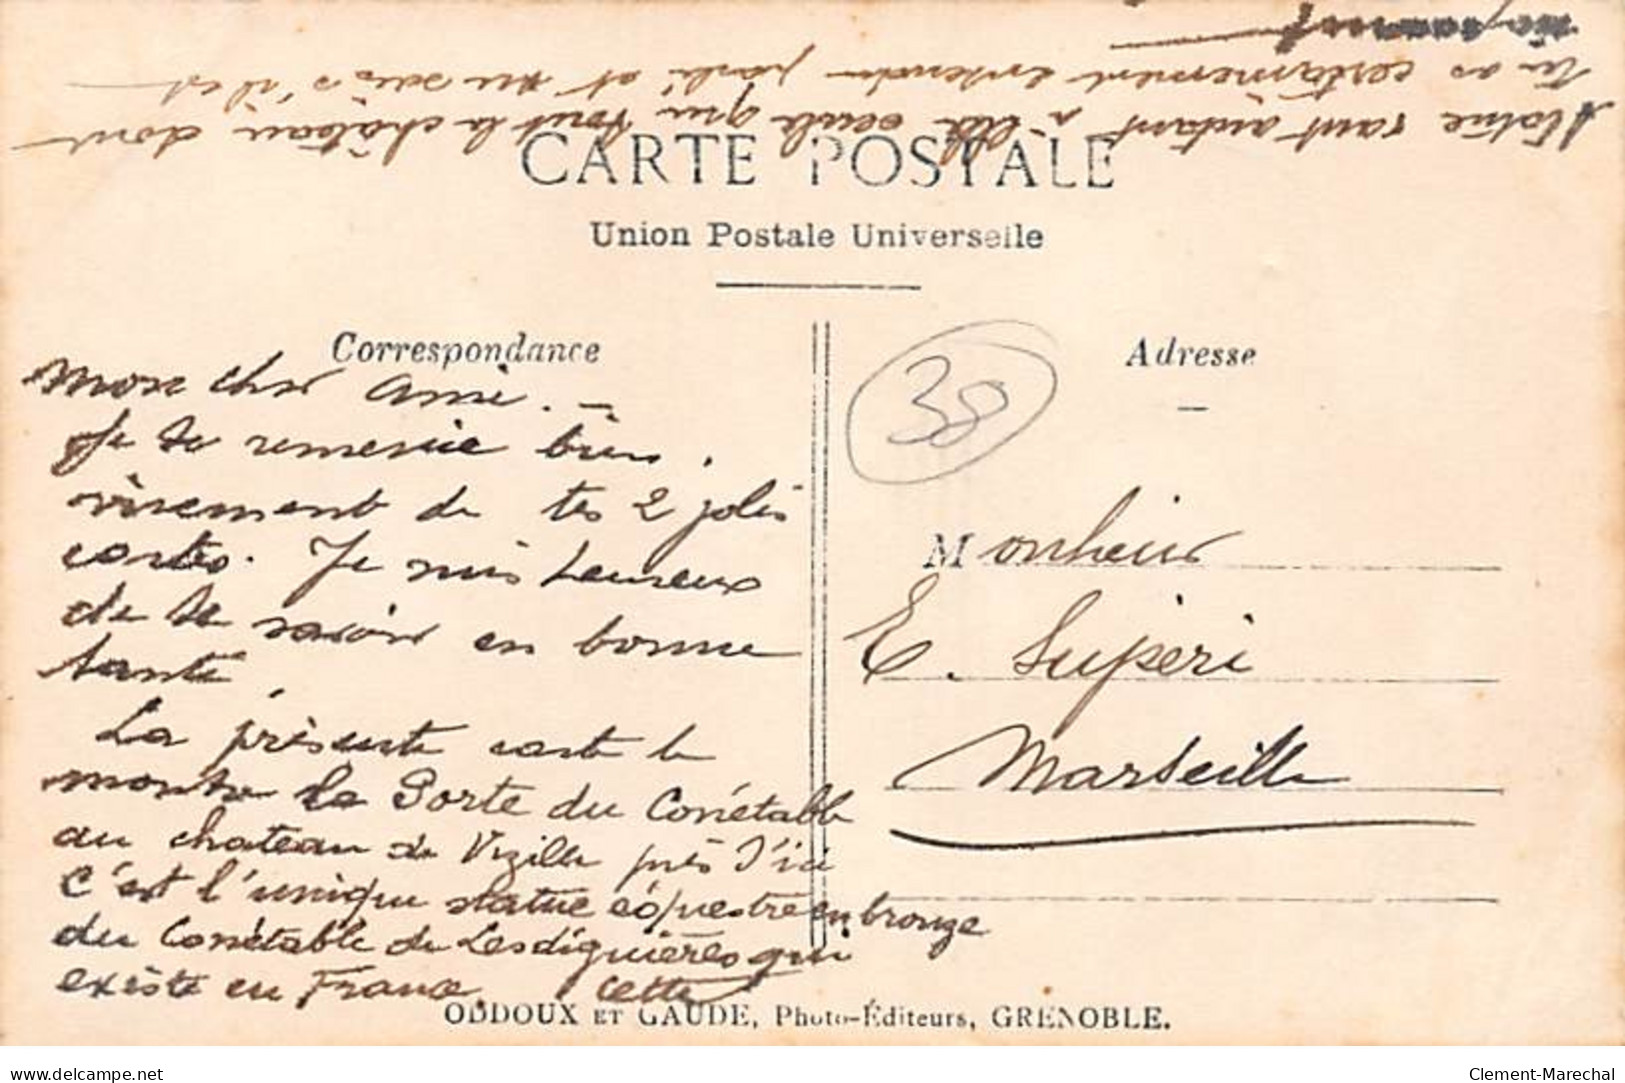 CARTE POSTALE
Union Postale Universelle
Correspondance
Mon cher ami. —
Je te remercie bien
vivement de tes 2 jolies
cartes. Je suis heureux
de te savoir en bonne
santé.
La présente carte te
montre la Porte du Conétable
au chateau de Vizille près d'ici
C'est l'unique statue équestre en bronze
du Conétable de Lesdiguières qui
existe en France. Cette
statue vaut autant à elle seule que tout le château dont
tu as certainement entendu parlé et tu sais s'il est
38
Adresse
Monsieur
E. Supéri
Marseille
ODDOUX ET GAUDE, Photo-Éditeurs, GRENOBLE.
delcampe.net
Clement-Marechal